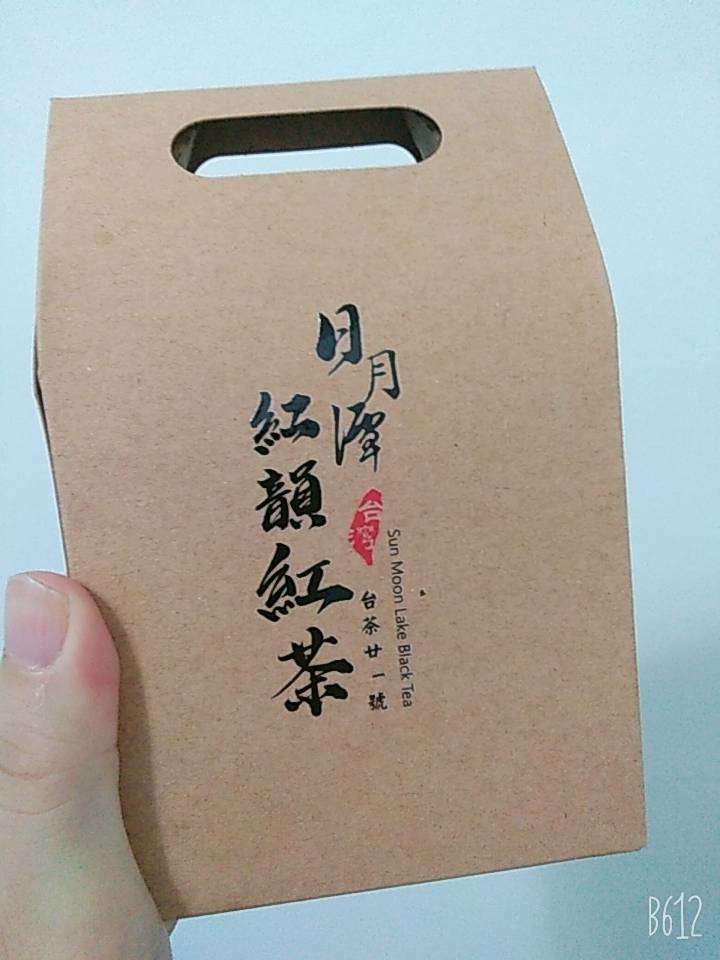 日月潭
紅韻紅茶
台灣
Sun Moon Lake Black Tea
台茶廿一號
B612